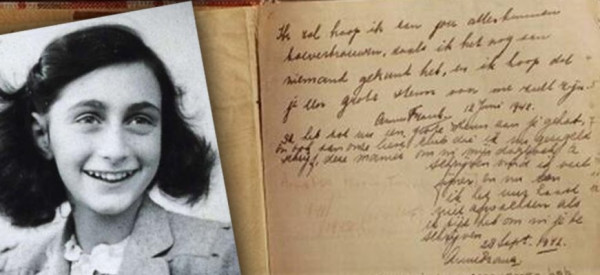 Ik zal hoop ik aan jou alles kunnen
toevertrouwen, zoals ik het nog aan
niemand gekund heb, en ik hoop dat
je een grote steun voor me zult zijn.
Anne Frank. 12 Juni 1942.
Ik heb tot nu een grote steun aan je gehad,
en ook aan onze lieve club die ik nu geregeld
schrijf, deze manier om in mijn dagboek te
schrijven vind ik veel
fijner en nu kan
ik het uur haast
niet afwachten als
ik tijd heb om in je te
schrijven.
28 Sept. 1942.
Anne Frank.